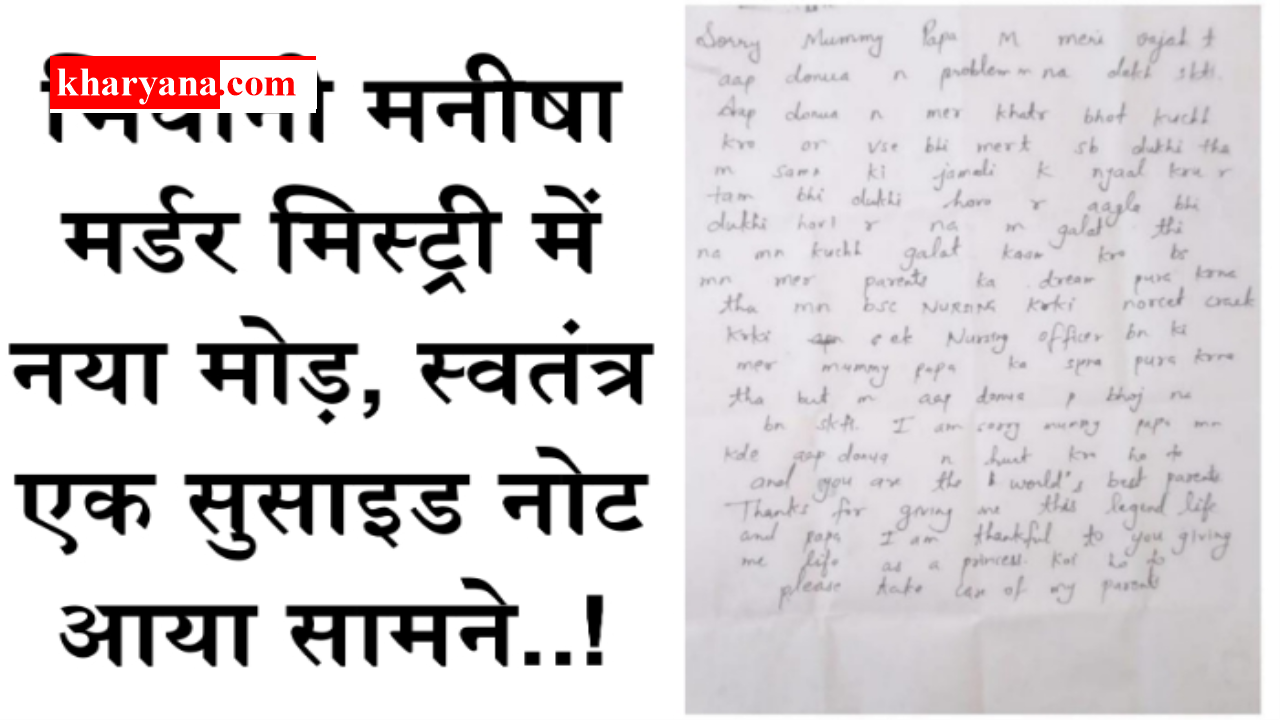 kharyana.com
मनीषा
मर्डर मिस्ट्री में
नया मोड़, स्वतंत्र
एक सुसाइड नोट
आया सामने..!
Sorry Mummy Papa M meri vajah t
aap donua n problem m na dekh skti.
Aap donua n mer khatr bhot kuchh
kro or vse bhi mer t sb dukhi tha
m samn ki jamali k nyaal kru r
tam bhi dukhi horo r aagle bhi
dukhi hori r na m galat thi
na mn kuchh galat kaam kro bs
mn mer parents ka dream pura krna
tha mn bsc NURSING krki norcet crack
krki ek Nursing officer bn ki
mer mummy papa ka spna pura krna
tha but m aap donua p bhoj na
bn skti. I am sorry mummy papa mn
kde aap donua n hurt kro ho to
and you are the world's best parents
Thanks for giving me this legend life
and papa I am thankful to you giving
me life as a princess. Koi ho to
please take care of my parents